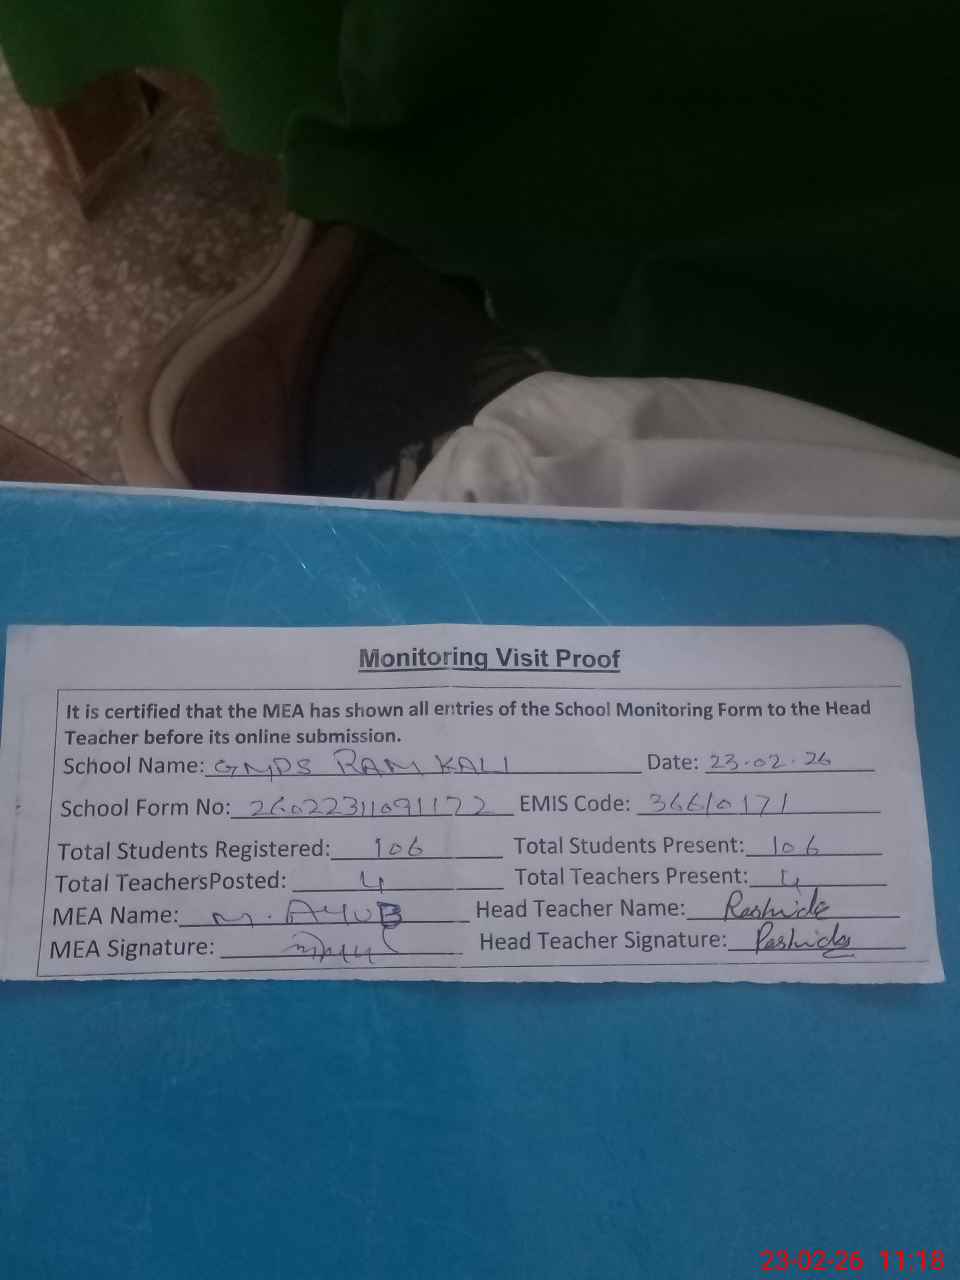 Monitoring Visit Proof
It is certified that the MEA has shown all entries of the School Monitoring Form to the Head
Teacher before its online submission.
School Name: GMPS RAM KALI Date: 23.02.26
School Form No: 26022311091172 EMIS Code: 36610171
Total Students Registered: 106 Total Students Present: 106
Total TeachersPosted: 4 Total Teachers Present: 4
MEA Name: M. AYUB Head Teacher Name: Rashida
MEA Signature: Head Teacher Signature: Rashida
23-02-26 11:18